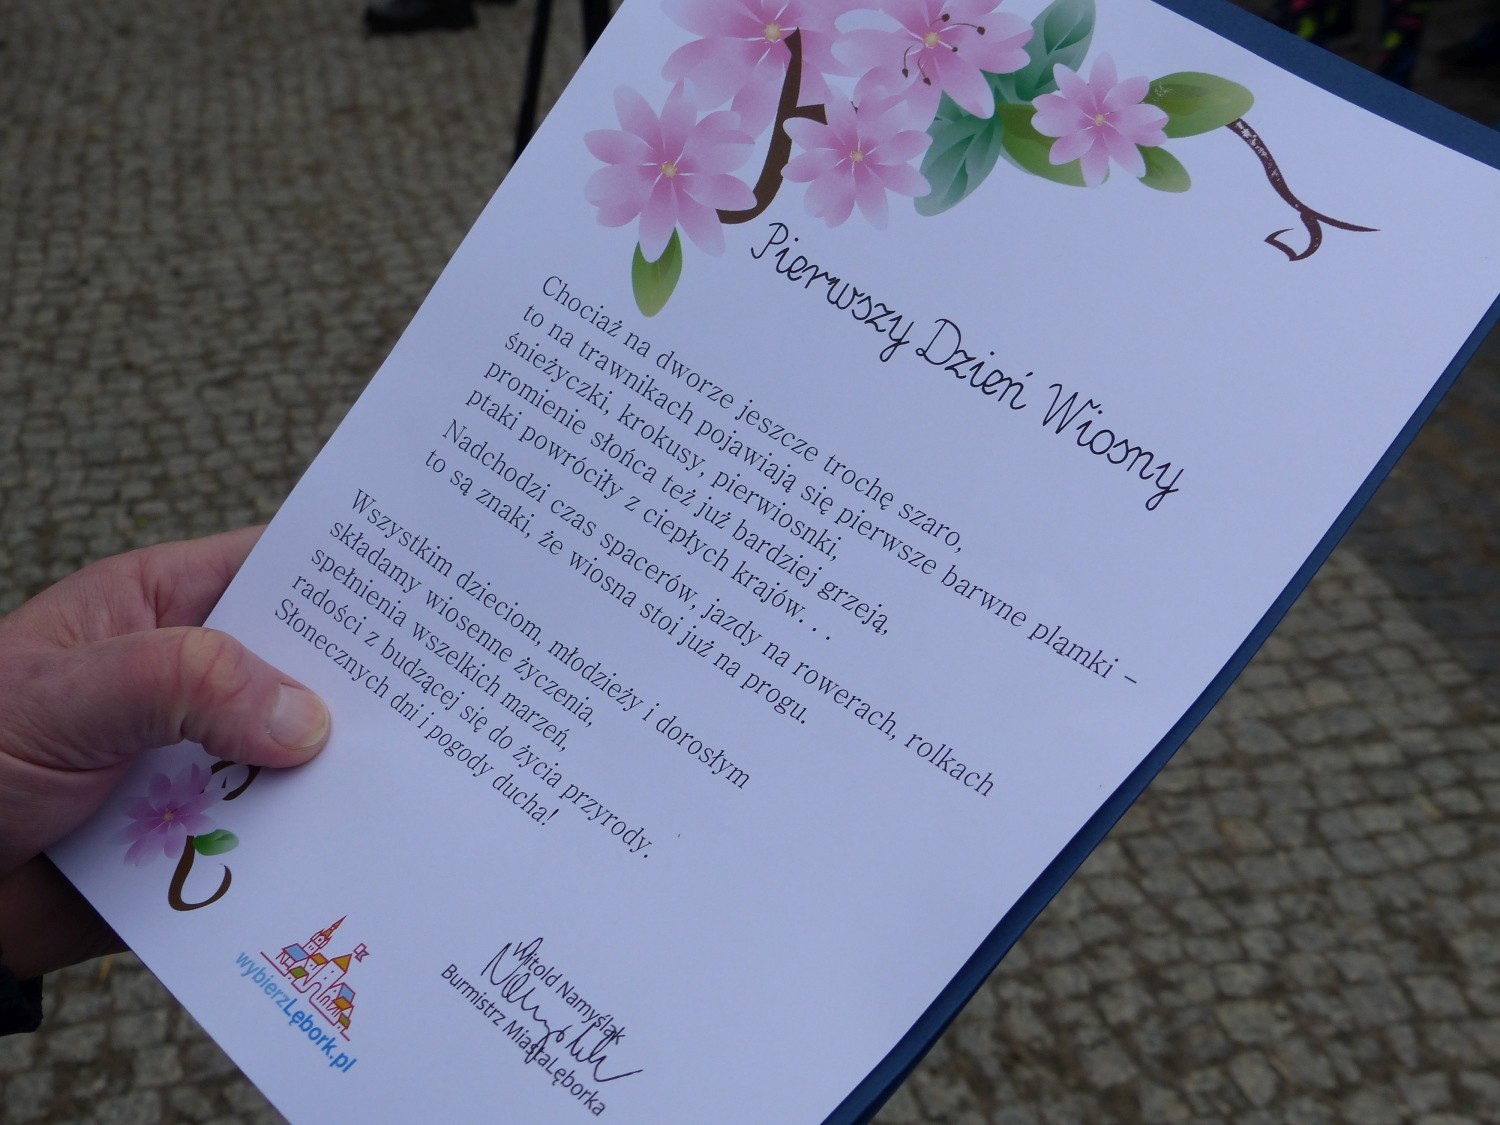 Pierwszy Dzień Wiosny
Chociaż na dworze jeszcze trochę szaro,
to na trawnikach pojawiają się pierwsze barwne plamki –
śnieżyczki, krokusy, pierwiosnki,
promienie słońca też już bardziej grzeją,
ptaki powróciły z ciepłych krajów...
Nadchodzi czas spacerów, jazdy na rowerach, rolkach
to są znaki, że wiosna stoi już na progu.
Wszystkim dzieciom, młodzieży i dorosłym
składamy wiosenne życzenia,
spełnienia wszelkich marzeń,
radości z budzącej się do życia przyrody.
Słonecznych dni i pogody ducha!
wybierzLębork.pl
Witold Namyślak
Burmistrz Miasta Lęborka